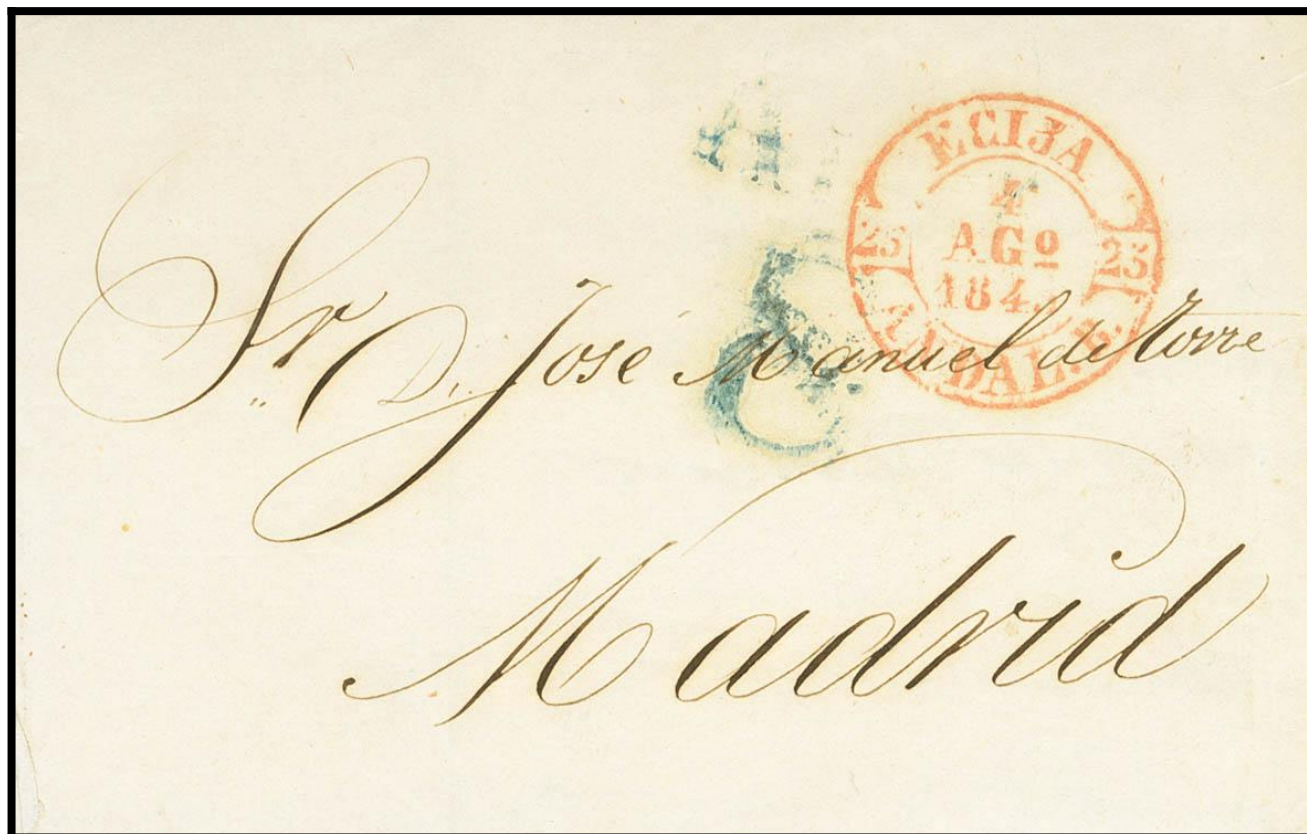 ECIJA
4
AGº
184
25 25
ANDAL. B.
8
Sr D. José Manuel de Torre
Madrid